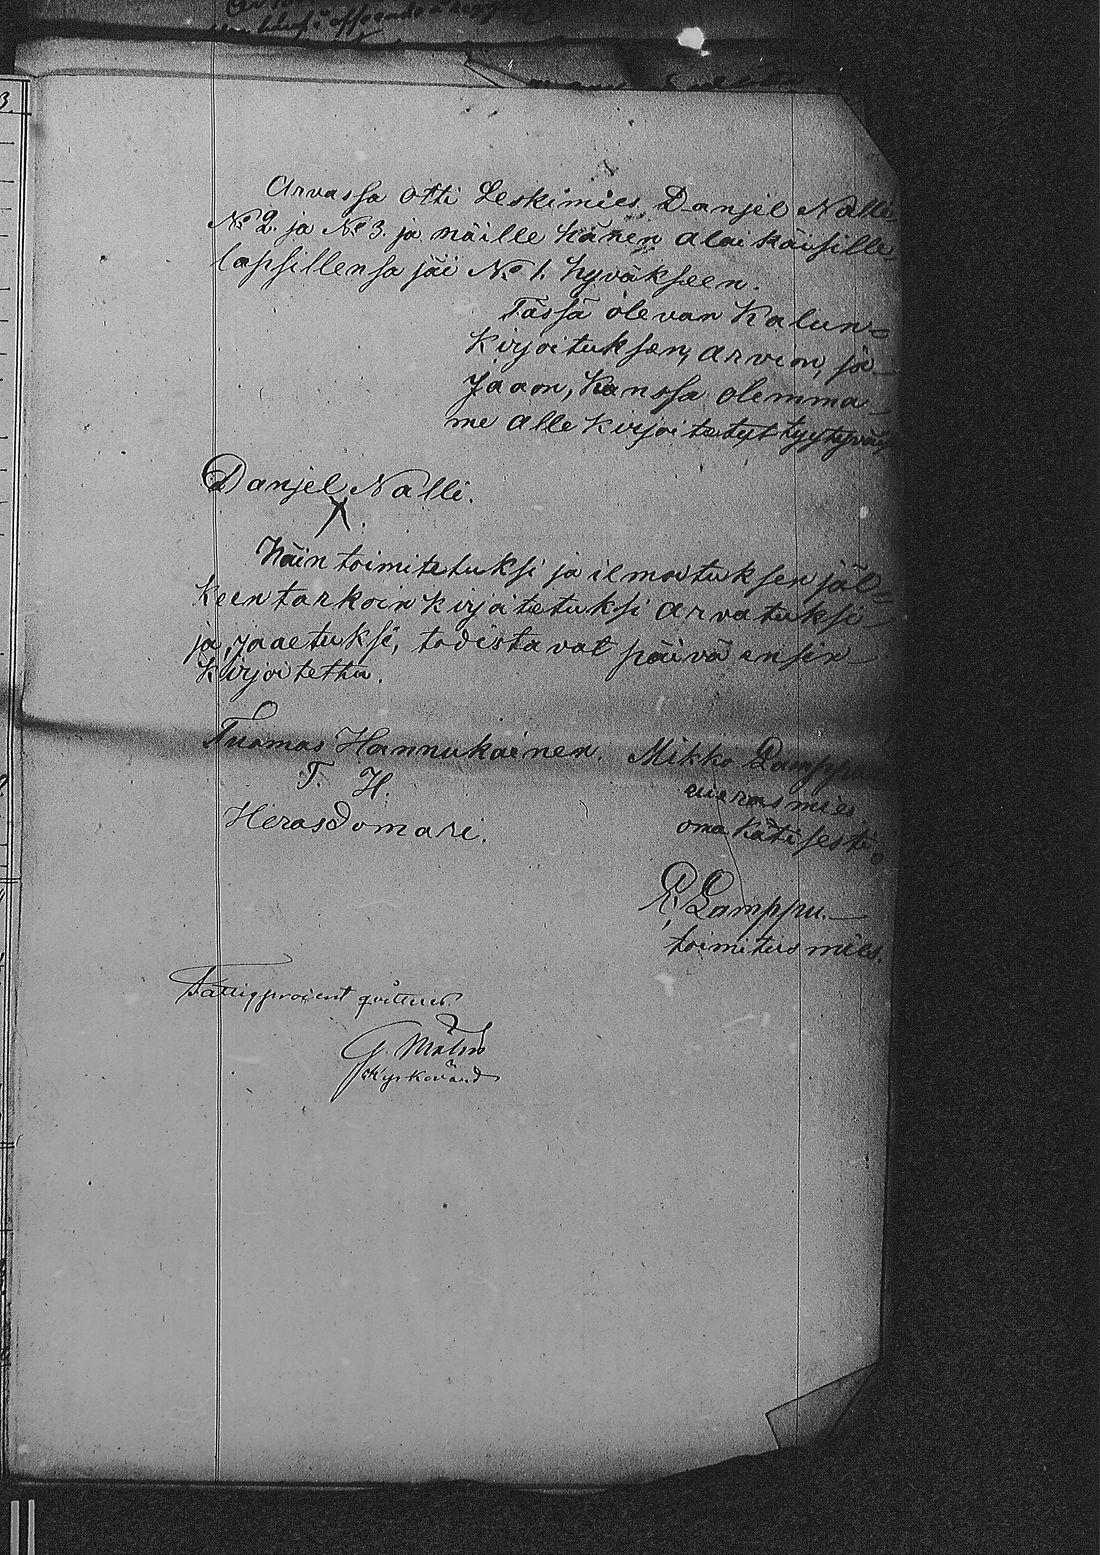 Arvassa otti Leskimies Danjel Nalli
No 2. ja No 3. ja näille hänen alaikäisille
lapsillensa jäi No 1. hyväkseen.
Tässä olevan Kalun=
kirjoituksen, arvion, ja
jaaon, kanssa olemma
me allekirjoitetyt tyytyväi
Danjel Nalli.
X
Näin toimitetuksi ja ilmoituksen jäl=
keen tarkoin kirjoitetuksi arvatuksi
ja, jaaetuksi, todistavat päivä ensin
kirjoitettu.
Tuomas Hannukainen. Mikko Lamppu
T. H. uierasmies
Herasdomari. omakätisesti
R, Lamppu.
toimitus mies.
Fattigprocent qvitteras
G. Malm
Kyrkovärd